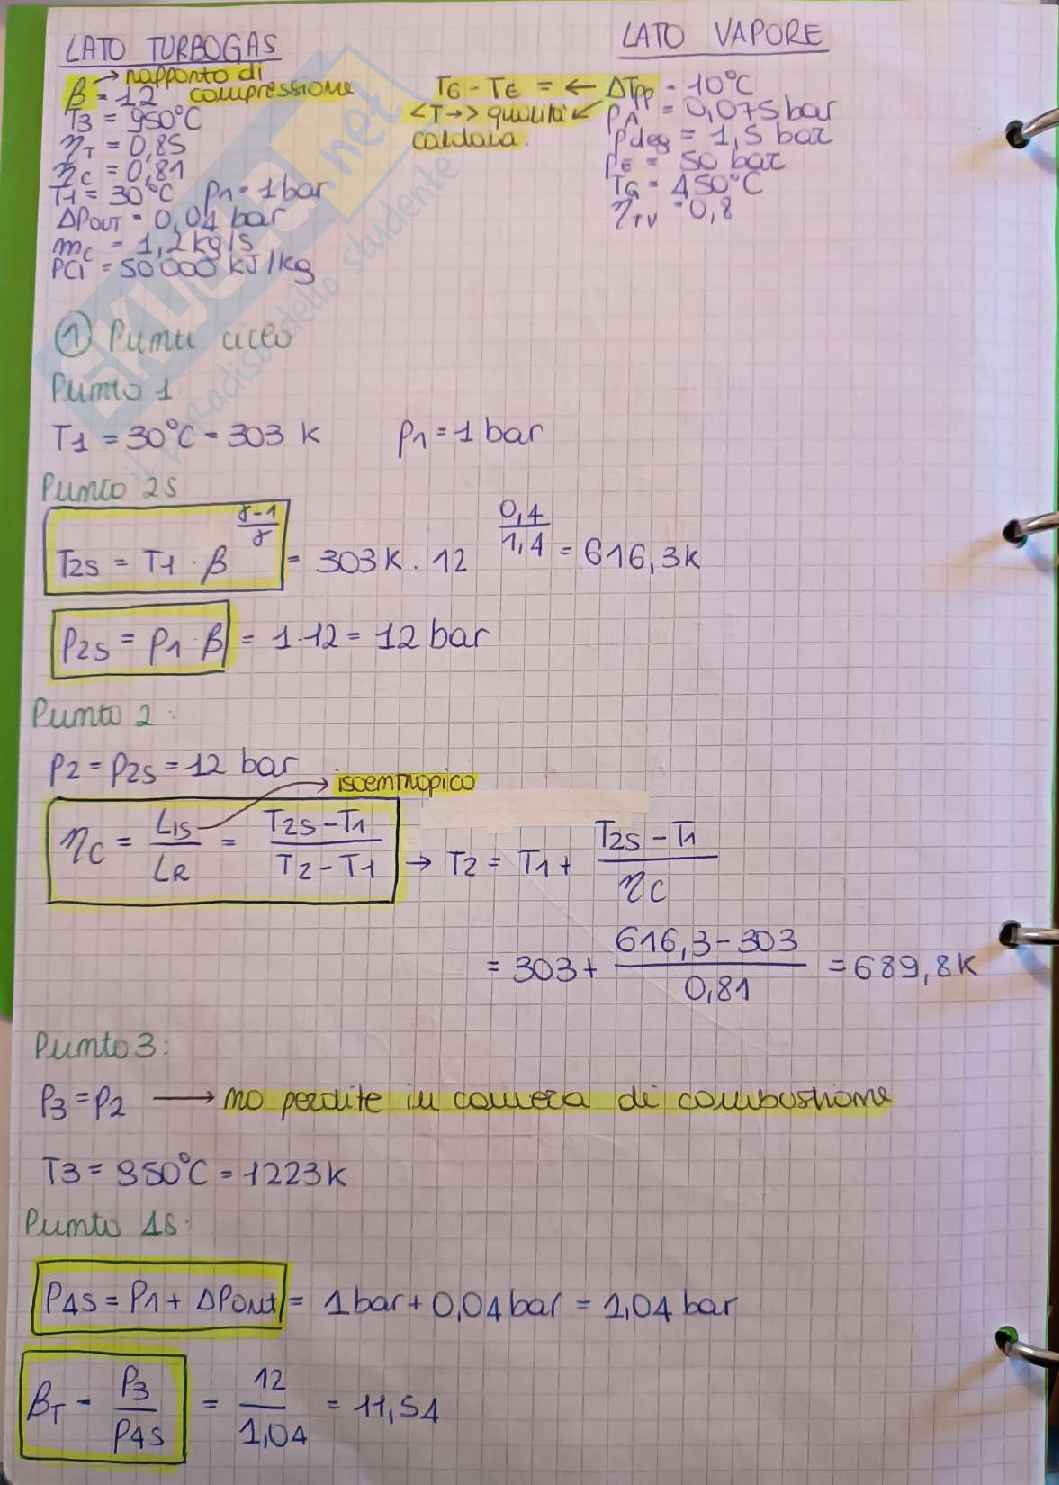 LATO TURBOGAS
β → rapporto di
β = 12 compressione
T3 = 950°C
ηT = 0,85
ηC = 0,81
T1 = 30°C p1 = 1 bar
ΔPOUT = 0,04 bar
mc = 1,2 kg/s
PCi = 50 000 kJ/kg
LATO VAPORE
TG - TE = ← ΔTpp = 10°C
<T →> qualità ↙ pA = 0,075 bar
caldaia. pdeg = 1,5 bar
pE = 50 bar
TG = 450°C
ηTV = 0,8
① Punti ciclo
Punto 1
T1 = 30°C = 303 K p1 = 1 bar
Punto 2s
T2s = T1 · β^(γ-1/γ) = 303 K · 12^(0,4/1,4) = 616,3 K
p2s = p1 · β = 1·12 = 12 bar
Punto 2:
p2 = p2s = 12 bar
→ isoentropico
ηC = Lis/LR = T2s-T1/T2-T1 → T2 = T1 + T2s-T1/ηC
= 303 + 616,3-303/0,81 = 689,8 K
Punto 3:
P3 = P2 → no perdite in camera di combustione
T3 = 950°C = 1223 K
Punto 4s:
P4s = P1 + ΔPout = 1 bar + 0,04 bar = 1,04 bar
βT = P3/P4s = 12/1,04 = 11,54